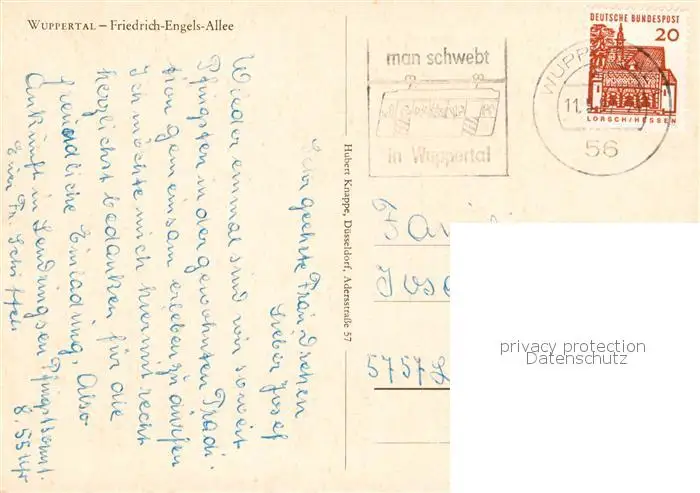 WUPPERTAL – Friedrich-Engels-Allee
Sehr geehrte Frau Drehen
Lieber Josef
Wieder einmal sind wir soweit
Pfingsten in der gewohnten Tradi-
tion gemeinsam erleben zu dürfen
Ich möchte mich hiermit recht
herzlichst bedanken für die
freundliche Einladung, Also
Ankunft in Lendringsen Pfingstsonnt.
8.55 Uhr
Euer Fr.
Hubert Knappe, Düsseldorf, Adersstraße 57
man schwebt
in Wuppertal
WUPP
11.
56
DEUTSCHE BUNDESPOST
20
LORSCH/HESSEN
Fami
Jose
5757
privacy protection
Datenschutz